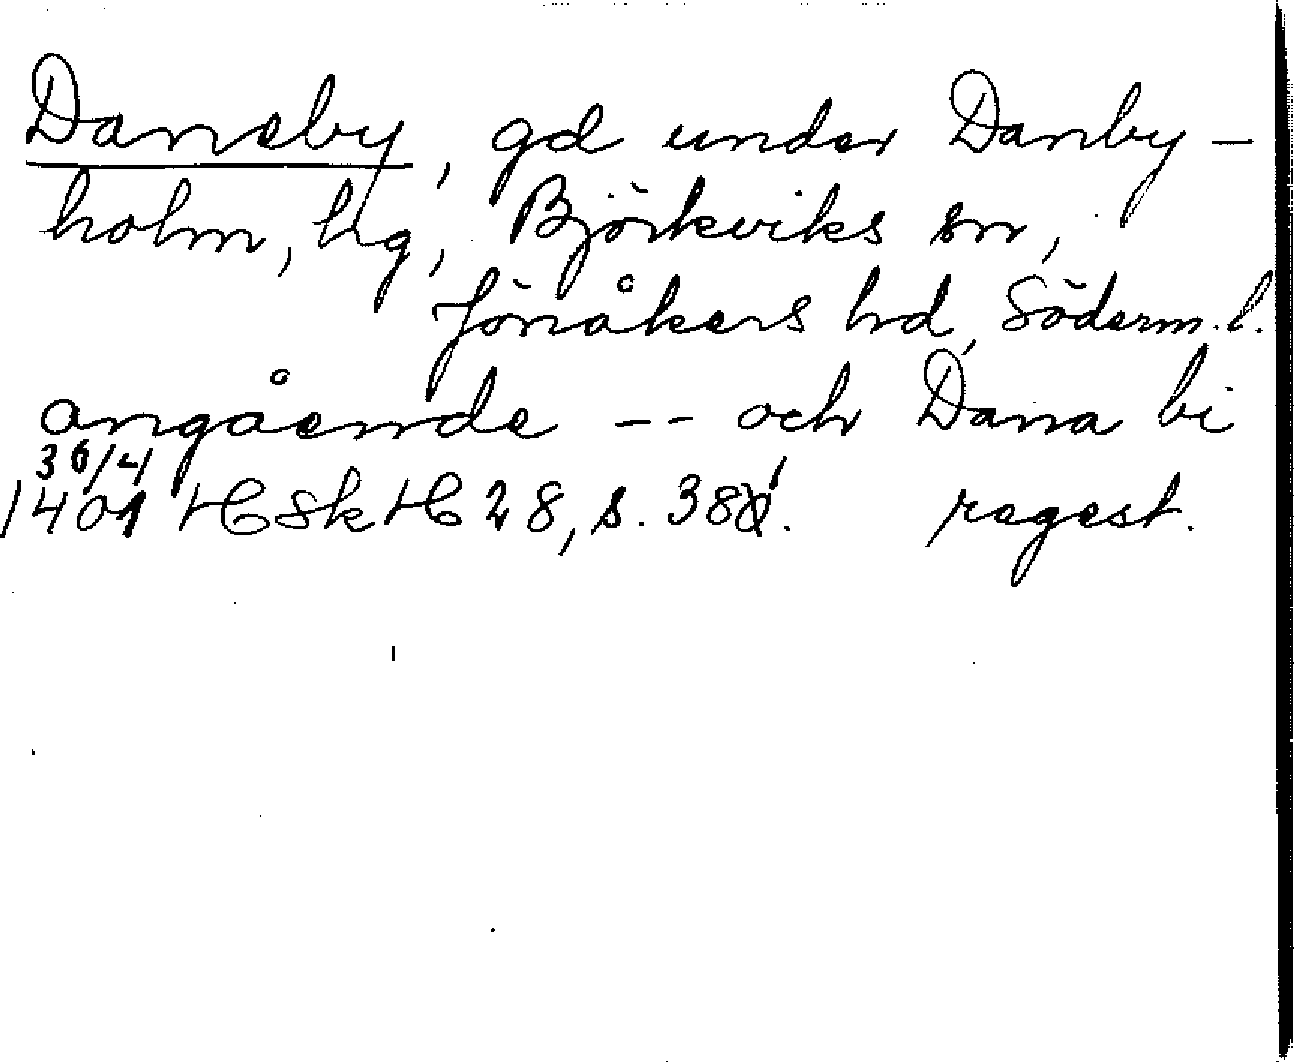 Daneby, gd under Danby-
holm, hg, Björkviks sn,
Jönåkers hd, Söderm. l.
angående -- och Dana bi
30/4
1401 HSkH 28, s. 38 regest.